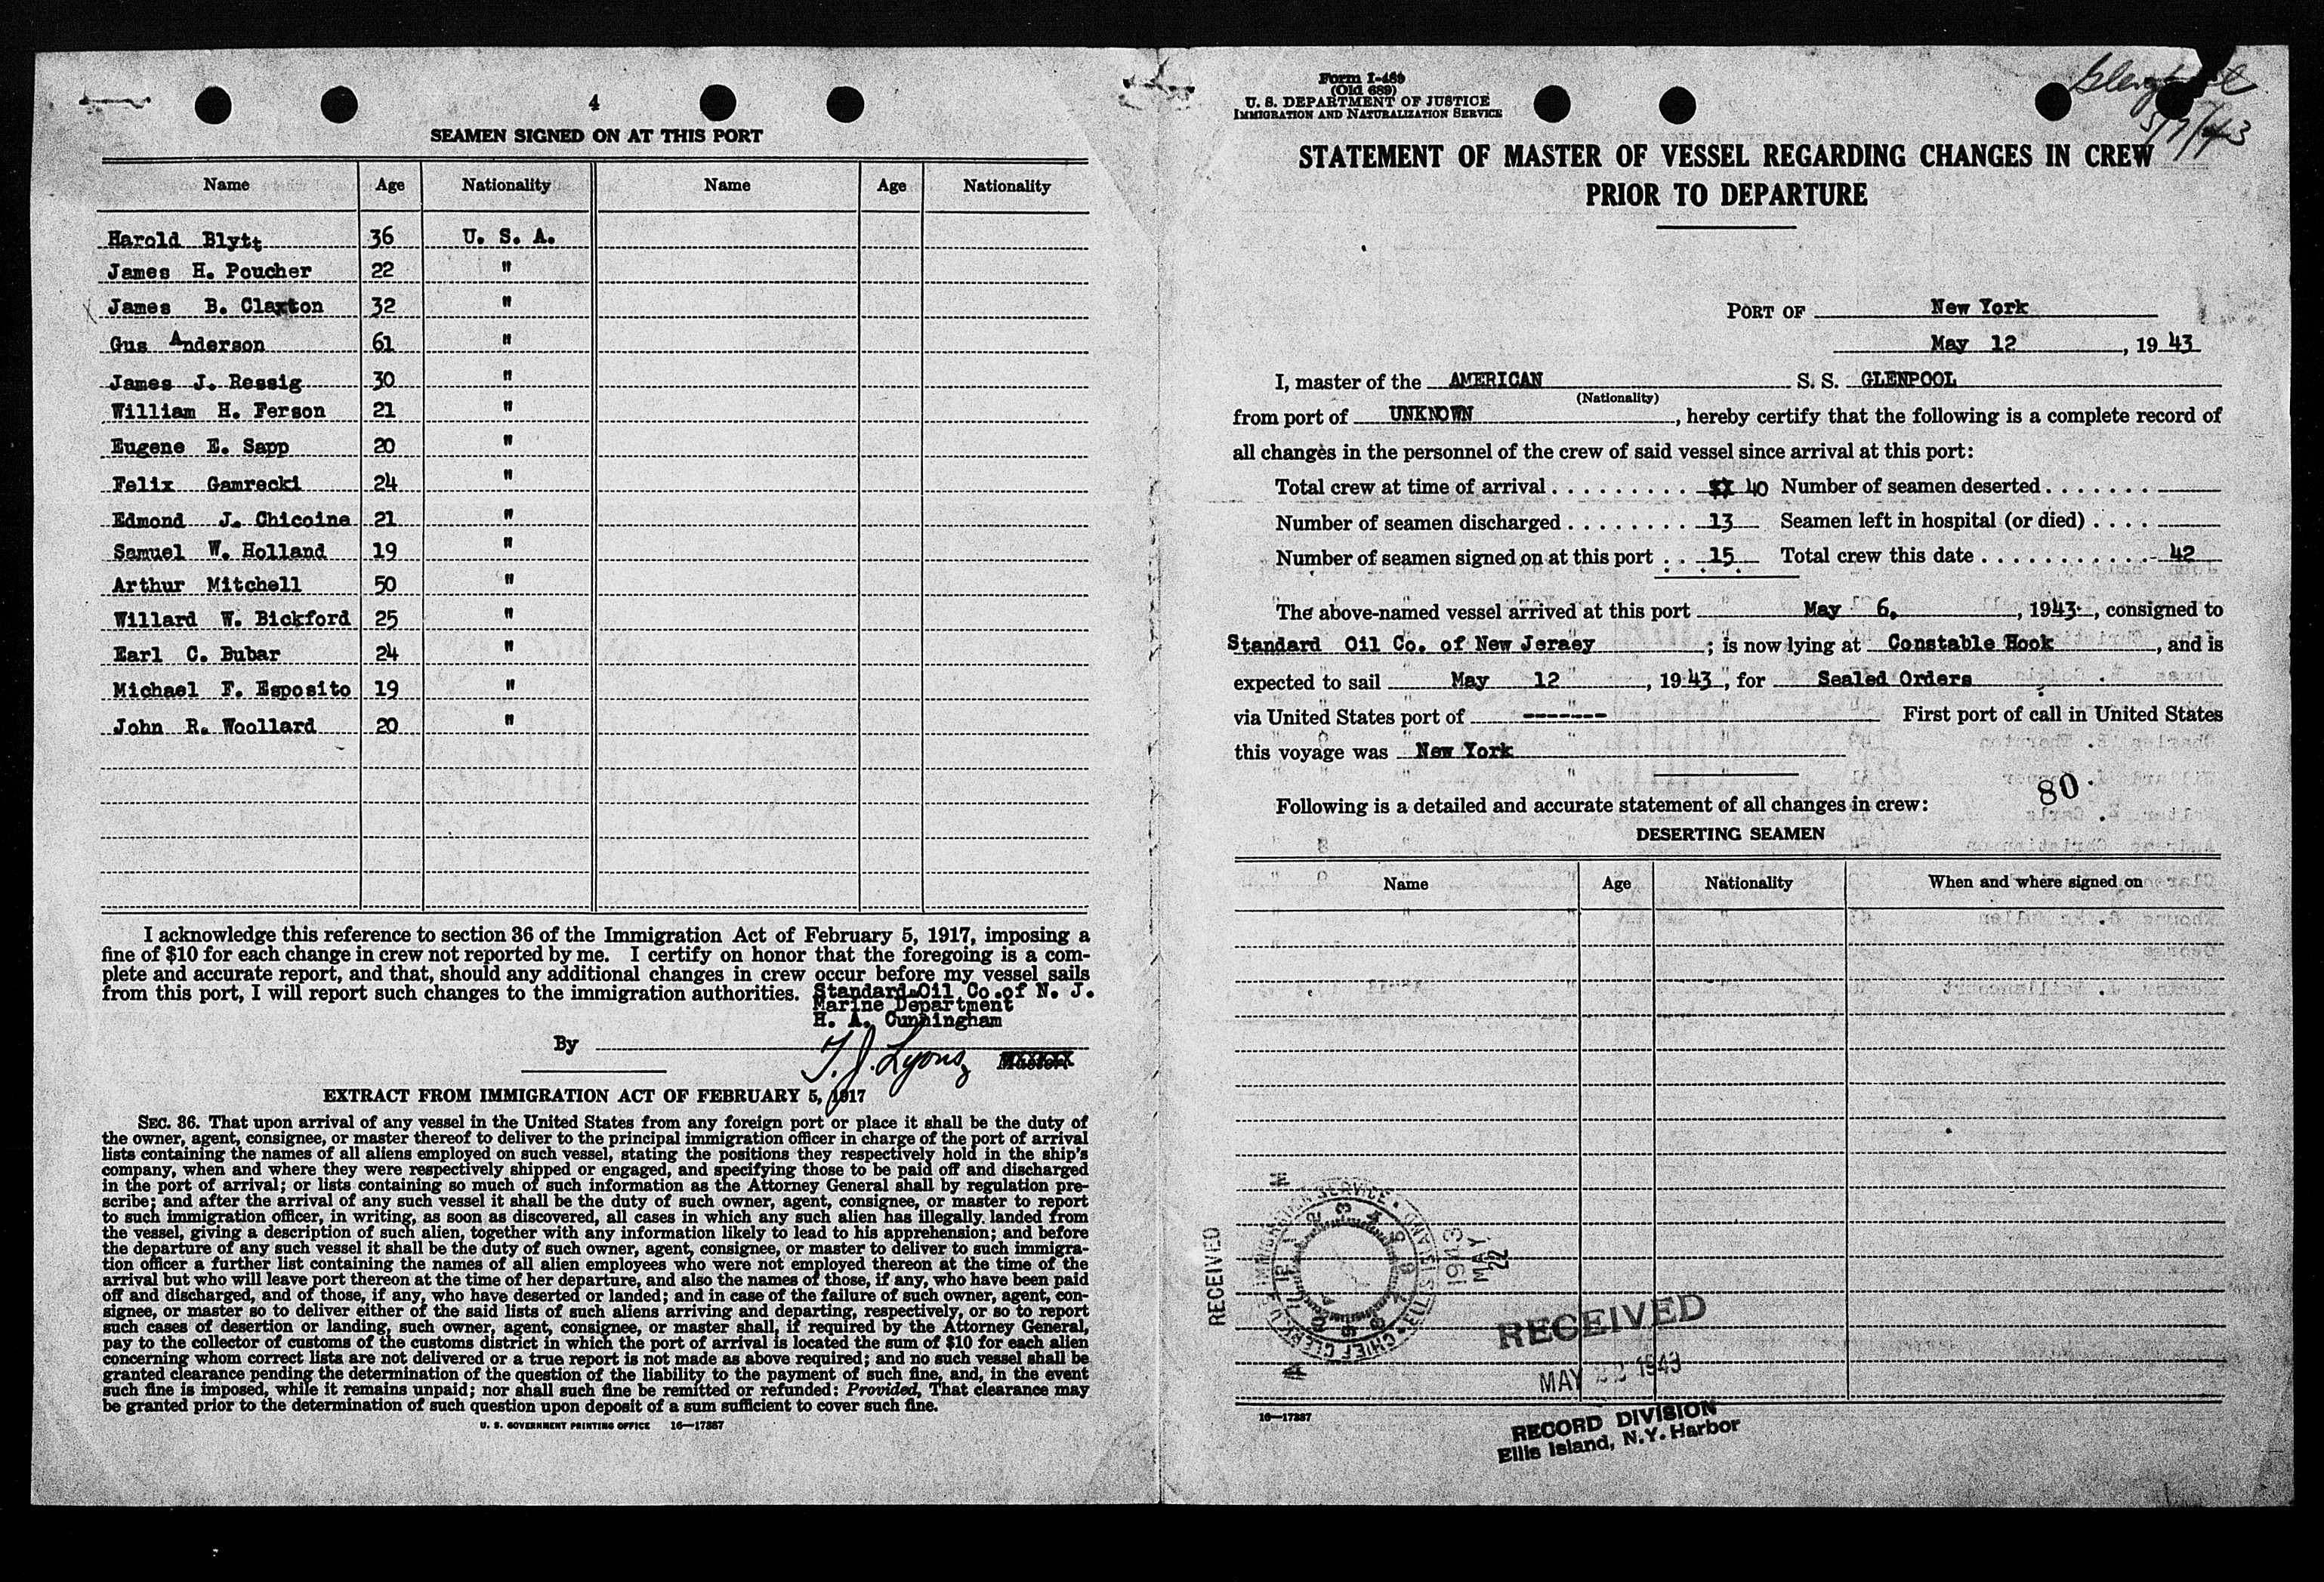 4
SEAMEN SIGNED ON AT THIS PORT
Name Age Nationality Name Age Nationality
Harold Blytt 36 U. S. A.
James H. Poucher 22 "
James B. Claxton 32 "
Gus Anderson 61 "
James J. Ressig 30 "
William H. Ferson 21 "
Eugene E. Sapp 20 "
Felix Gamrecki 24 "
Edmond J. Chicoine 21 "
Samuel W. Holland 19 "
Arthur Mitchell 50 "
Willard W. Bickford 25 "
Earl C. Bubar 24 "
Michael F. Esposito 19 "
John R. Woollard 20 "
I acknowledge this reference to section 36 of the Immigration Act of February 5, 1917, imposing a
fine of $10 for each change in crew not reported by me. I certify on honor that the foregoing is a com-
plete and accurate report, and that, should any additional changes in crew occur before my vessel sails
from this port, I will report such changes to the immigration authorities. Standard Oil Co.of N. J.
Marine Department
H. A. Cunningham
By T. J. Lyons Master.
EXTRACT FROM IMMIGRATION ACT OF FEBRUARY 5, 1917
SEC. 36. That upon arrival of any vessel in the United States from any foreign port or place it shall be the duty of
the owner, agent, consignee, or master thereof to deliver to the principal immigration officer in charge of the port of arrival
lists containing the names of all aliens employed on such vessel, stating the positions they respectively hold in the ship's
company, when and where they were respectively shipped or engaged, and specifying those to be paid off and discharged
in the port of arrival; or lists containing so much of such information as the Attorney General shall by regulation pre-
scribe; and after the arrival of any such vessel it shall be the duty of such owner, agent, consignee, or master to report
to such immigration officer, in writing, as soon as discovered, all cases in which any such alien has illegally. landed from
the vessel, giving a description of such alien, together with any information likely to lead to his apprehension; and before
the departure of any such vessel it shall be the duty of such owner, agent, consignee, or master to deliver to such immigra-
tion officer a further list containing the names of all alien employees who were not employed thereon at the time of the
arrival but who will leave port thereon at the time of her departure, and also the names of those, if any, who have been paid
off and discharged, and of those, if any, who have deserted or landed; and in case of the failure of such owner, agent, con-
signee, or master so to deliver either of the said lists of such aliens arriving and departing, respectively, or so to report
such cases of desertion or landing, such owner, agent, consignee, or master shall, if required by the Attorney General,
pay to the collector of customs of the customs district in which the port of arrival is located the sum of $10 for each alien
concerning whom correct lists are not delivered or a true report is not made as above required; and no such vessel shall be
granted clearance pending the determination of the question of the liability to the payment of such fine, and, in the event
such fine is imposed, while it remains unpaid; nor shall such fine be remitted or refunded: Provided, That clearance may
be granted prior to the determination of such question upon deposit of a sum sufficient to cover such fine.
U. S. GOVERNMENT PRINTING OFFICE 16—17387
Form I-489
(Old 689)
U. S. DEPARTMENT OF JUSTICE
IMMIGRATION AND NATURALIZATION SERVICE
Glenpool
5/7/43
STATEMENT OF MASTER OF VESSEL REGARDING CHANGES IN CREW
PRIOR TO DEPARTURE
PORT OF New York
May 12, 1943
I, master of the AMERICAN S. S. GLENPOOL
(Nationality)
from port of UNKNOWN, hereby certify that the following is a complete record of
all changes in the personnel of the crew of said vessel since arrival at this port:
Total crew at time of arrival . . . . . . . . . 40 Number of seamen deserted . . . . . . .
Number of seamen discharged . . . . . . . . 13 Seamen left in hospital (or died) . . . .
Number of seamen signed on at this port . . 15 Total crew this date . . . . . . . . . . . 42
The above-named vessel arrived at this port May 6, 1943, consigned to
Standard Oil Co. of New Jersey; is now lying at Constable Hook, and is
expected to sail May 12, 1943, for Sealed Orders
via United States port of ------- First port of call in United States
this voyage was New York
80.
Following is a detailed and accurate statement of all changes in crew:
DESERTING SEAMEN
Name Age Nationality When and where signed on
RECEIVED
1943
MAY
22
CHIEF CLERK U.S. IMMIGRATION SERVICE • ELLIS ISLAND
RECEIVED
MAY 22 1943
RECORD DIVISION
Ellis Island, N.Y. Harbor
16—17387